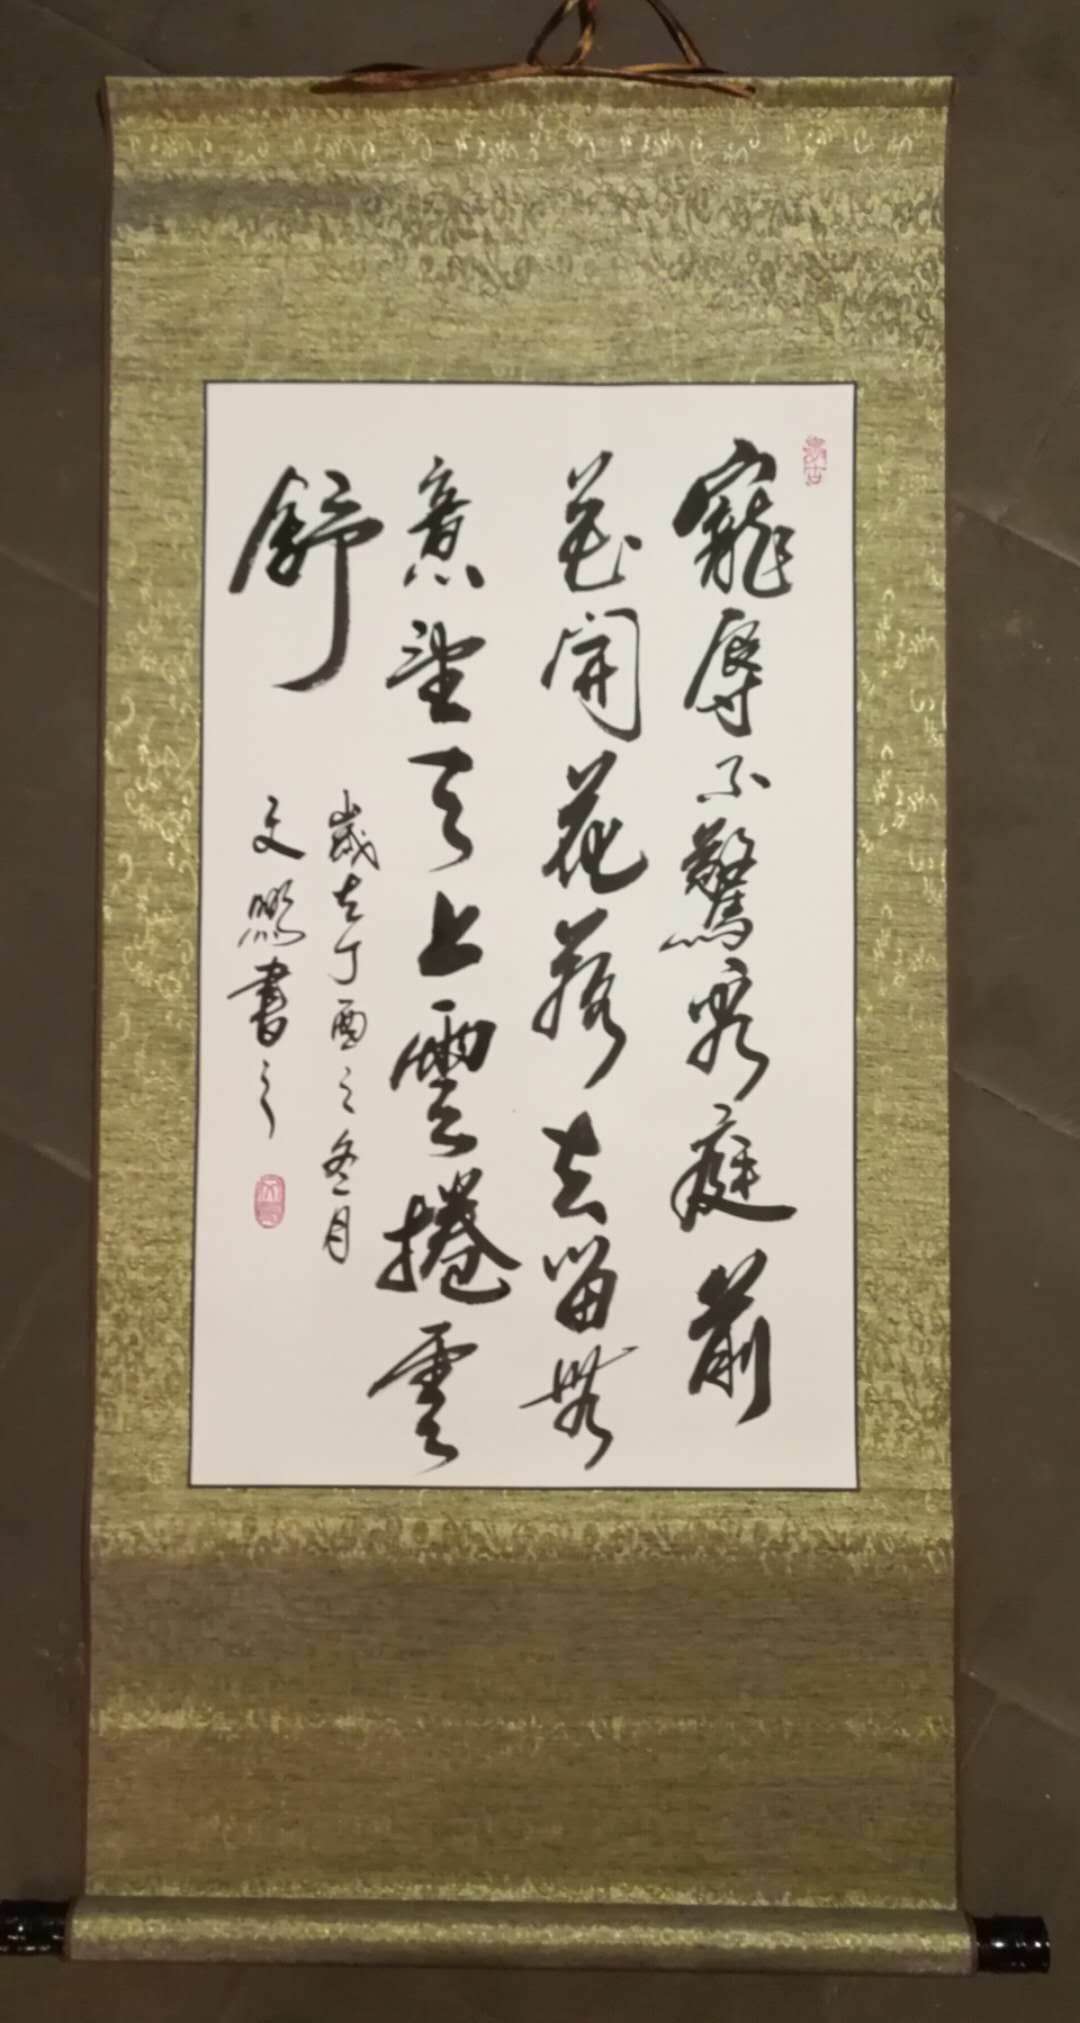 寵辱不驚看庭前
花開花落去留無
意望天上雲捲雲
舒
歲在丁酉之冬月
文鵬書之